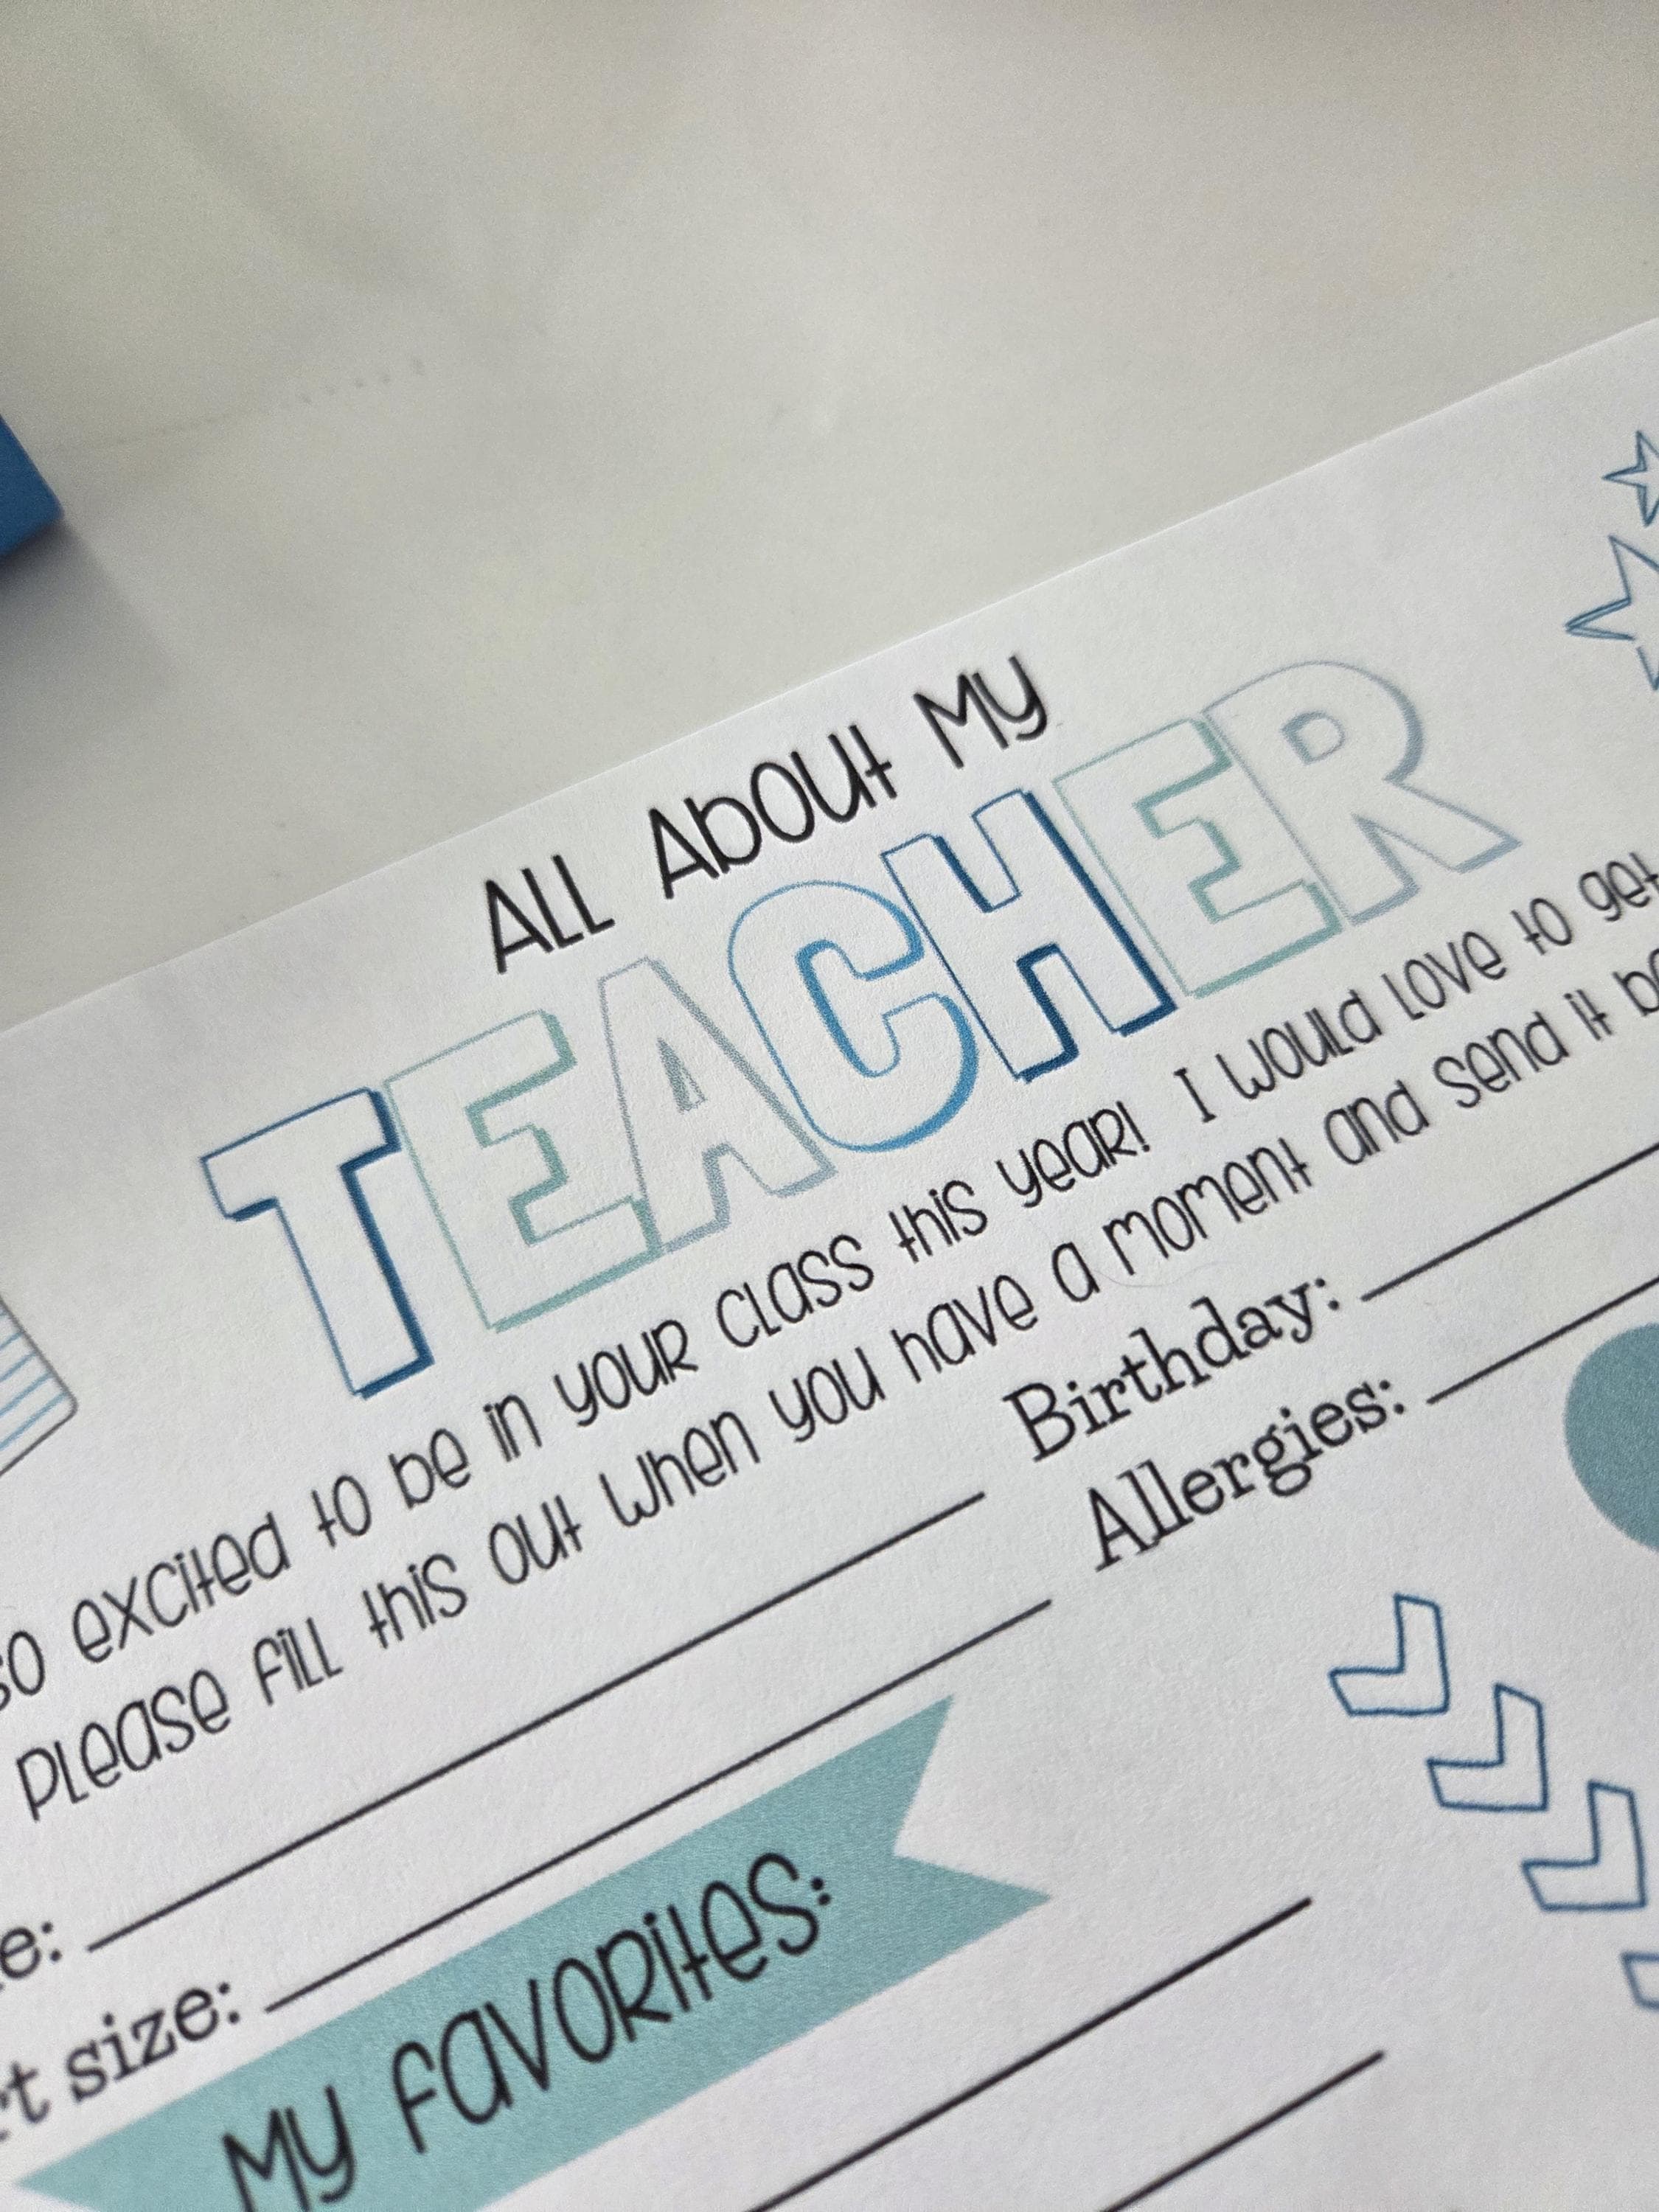 ALL About My
TEACHER
so excited to be in your class this year! I would love to get
Please fill this out when you have a moment and send it
Birthday:
Allergies:
size:
My Favorites: